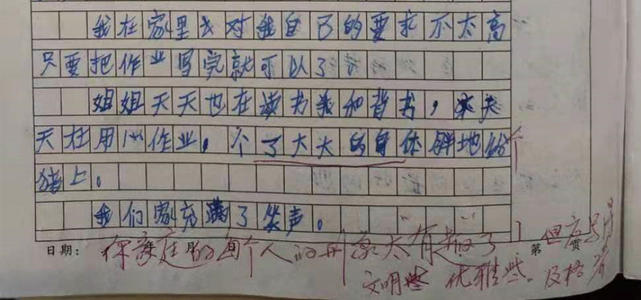 我在家里面对我自己的要求不太高
只要把作业写完就可以了。
姐姐天天也在读书和背书，
天在用心作业。个了大大的身体胖地
猪上。
我们家充满了笑声。
日期： 第 页
你家庭的每个人的形象太有趣了！但
文明些 优雅些。及格